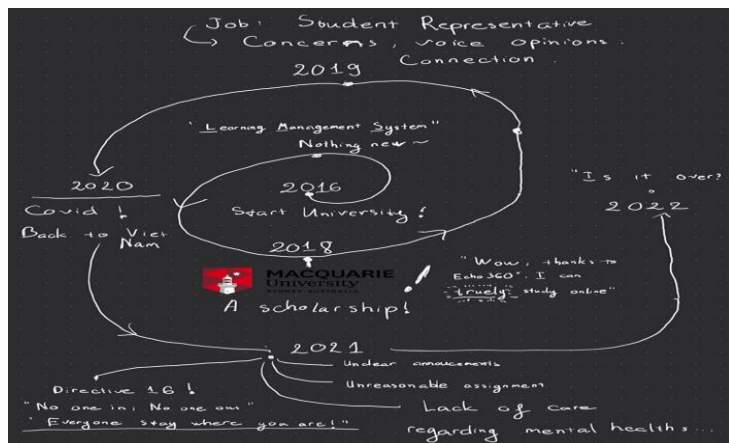 Job: Student Representative
Concerns, voice opinions.
Connection.
2019
"Learning Management System"
Nothing new ~
2016
Start University!
2020
Covid!
Back to Viet
Nam
"Is it over?
2022
2018
MACQUARIE
University
SYDNEY·AUSTRALIA
A scholarship!
!
"Wow, thanks to
Echo360°. I can
truely study online"
2021
Unclear annoucements
Unreasonable assignment
Lack of care
regarding mental healths...
Directive 16!
"No one in, No one out"
"Everyone stay where you are!"